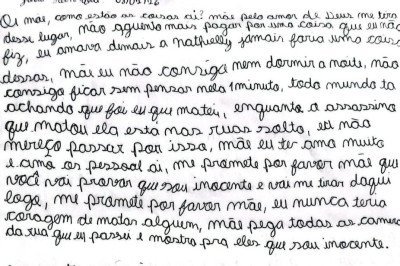 Oi mãe, como estão as coisas ai? mãe pelo amor de Deus me tira
desse lugar, não aguento mais pagar por uma coisa que eu não
fiz, eu amava demais a Nathielly jamais faria uma coisa
dessas, mãe eu não consigo nem dormir a noite, não
consigo ficar sem pensar nela 1 minuto, todo mundo ta
achando que foi eu que matei, enquanto o assassino
que matou ela esta nas ruas solto, eu não
mereço passar por isso, mãe eu te amo muito
e amo os pessoal ai, me promete por favor mãe que
você vai provar que sou inocente e vai me tirar daqui
logo, me promete por favor mãe, eu nunca teria
coragem de matar alguem, mãe pega todas as camera
da rua que eu passei e mostra pra eles que sou inocente.